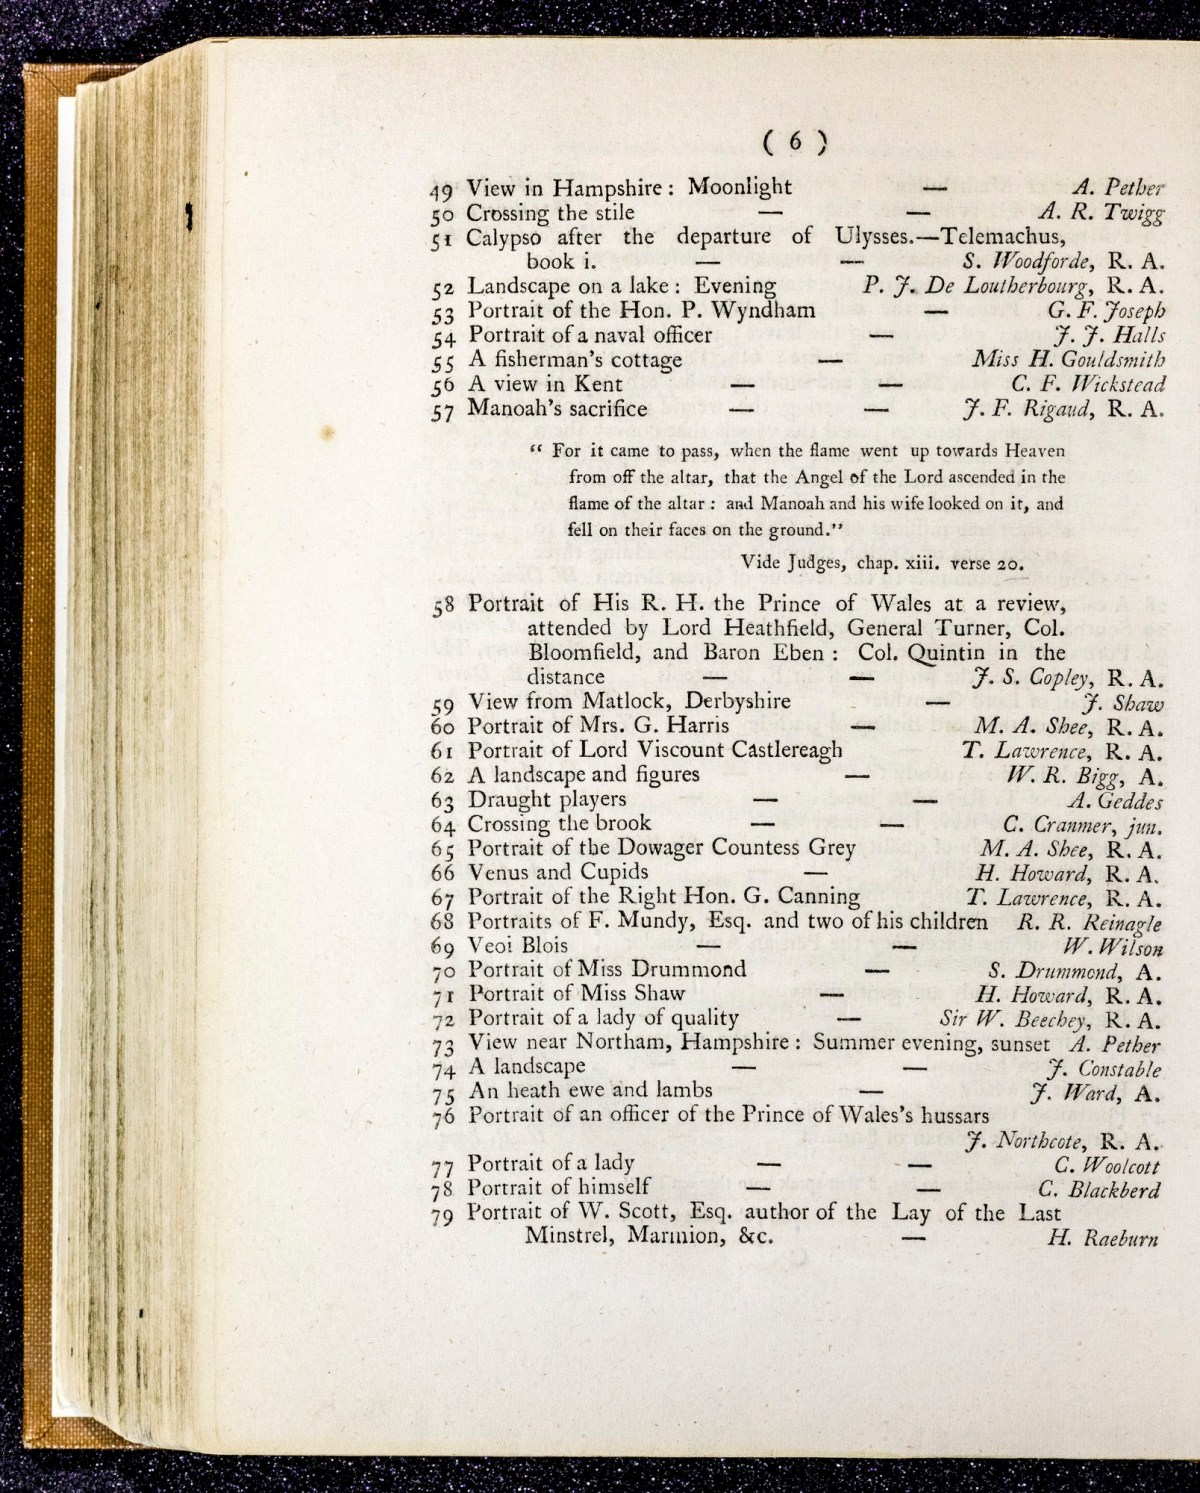 ( 6 )
49 View in Hampshire : Moonlight — A. Pether
50 Crossing the stile — — A. R. Twigg
51 Calypso after the departure of Ulysses.—Telemachus,
book i. — — S. Woodforde, R. A.
52 Landscape on a lake : Evening P. J. De Loutherbourg, R. A.
53 Portrait of the Hon. P. Wyndham — G. F. Joseph
54 Portrait of a naval officer — J. J. Halls
55 A fisherman's cottage — Miss H. Gouldsmith
56 A view in Kent — — C. F. Wickstead
57 Manoah's sacrifice — — J. F. Rigaud, R. A.
“ For it came to pass, when the flame went up towards Heaven
from off the altar, that the Angel of the Lord ascended in the
flame of the altar : and Manoah and his wife looked on it, and
fell on their faces on the ground.”
Vide Judges, chap. xiii. verse 20.
58 Portrait of His R. H. the Prince of Wales at a review,
attended by Lord Heathfield, General Turner, Col.
Bloomfield, and Baron Eben : Col. Quintin in the
distance — — J. S. Copley, R. A.
59 View from Matlock, Derbyshire — J. Shaw
60 Portrait of Mrs. G. Harris — M. A. Shee, R. A.
61 Portrait of Lord Viscount Castlereagh T. Lawrence, R. A.
62 A landscape and figures — W. R. Bigg, A.
63 Draught players — — A. Geddes
64 Crossing the brook — — C. Cranmer, jun.
65 Portrait of the Dowager Countess Grey M. A. Shee, R. A.
66 Venus and Cupids — H. Howard, R. A.
67 Portrait of the Right Hon. G. Canning T. Lawrence, R. A.
68 Portraits of F. Mundy, Esq. and two of his children R. R. Reinagle
69 Veoi Blois — — W. Wilson
70 Portrait of Miss Drummond — S. Drummond, A.
71 Portrait of Miss Shaw — H. Howard, R. A.
72 Portrait of a lady of quality — Sir W. Beechey, R. A.
73 View near Northam, Hampshire : Summer evening, sunset A. Pether
74 A landscape — — J. Constable
75 An heath ewe and lambs — J. Ward, A.
76 Portrait of an officer of the Prince of Wales's hussars
J. Northcote, R. A.
77 Portrait of a lady — — C. Woolcott
78 Portrait of himself — — C. Blackberd
79 Portrait of W. Scott, Esq. author of the Lay of the Last
Minstrel, Marmion, &c. — H. Raeburn